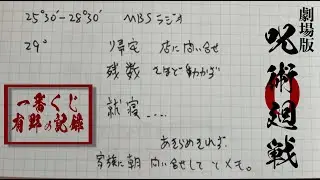 25°30'-28°30' MBSラジオ
29° 帰宅 店に問い合せ
残数 それほど動かず
就寝....
あきらめきれず、
家族に朝 問い合せして とメモ。
一番くじ
有野の記録
劇場版
呪術廻戦